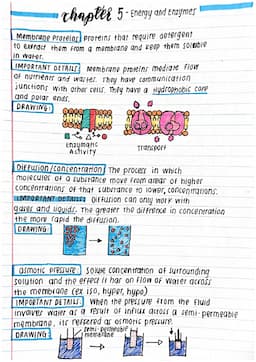 chapter 5 - Energy and Enzymes
Membrane Proteins: Proteins that require detergent
to extract them from a membrane and keep them soluble
in water.
IMPORTANT DETAILS: Membrane proteins mediate flow
of nutrients and wastes. They have communication
junctions with other cells. They have a hydrophobic core
and polar ends.
DRAWING:
Enzymatic
Activity
Transport
Diffusion/concentration: The process in which
molecules of a substance move from areas of higher
concentrations of that substance to lower concentrations.
IMPORTANT DETAILS: Diffusion can only work with
gases and liquids. The greater the difference in concentration
the more rapid the diffusion.
DRAWING
Osmotic pressure: Solute concentration of surrounding
solution and the effect it has on flow of water across
the membrane (ex iso, hyper, hypo)
IMPORTANT DETAILS: When the pressure from the fluid
involves water as a result of influx across a semi-permeable
membrane, its referred as osmotic pressure.
DRAWING:
semi-permeable
membrane